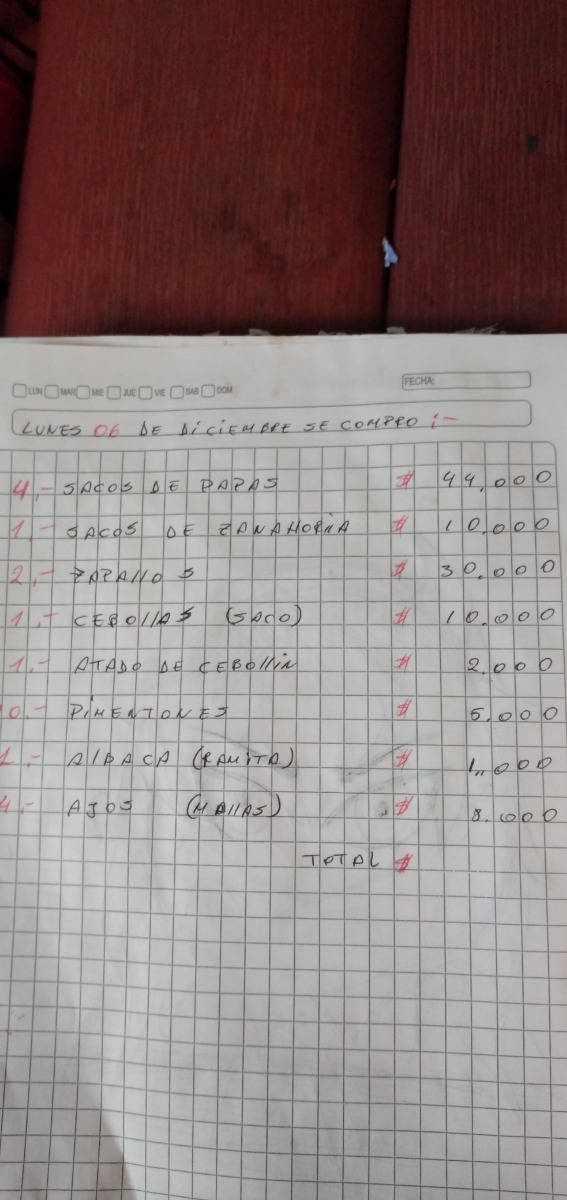 LUN MAR MIE JUE VIE SAB DOM
FECHA:
LUNES 06 DE DICIEMBRE SE COMPRO :-
4,- SACOS DE PAPAS $ 44,000
1,- SACOS DE ZANAHORIA $ 10.000
2,- ZAPALLOS $ 30.000
1,- CEBOLLAS (SACO) $ 10.000
1,- ATADO DE CEBOLLIN $ 2.000
0.- PIMENTONES $ 5.000
1,- ALBACA (RAMITA) $ 1,,000
4,- AJOS (MALLAS) $ 8.000
TOTAL $